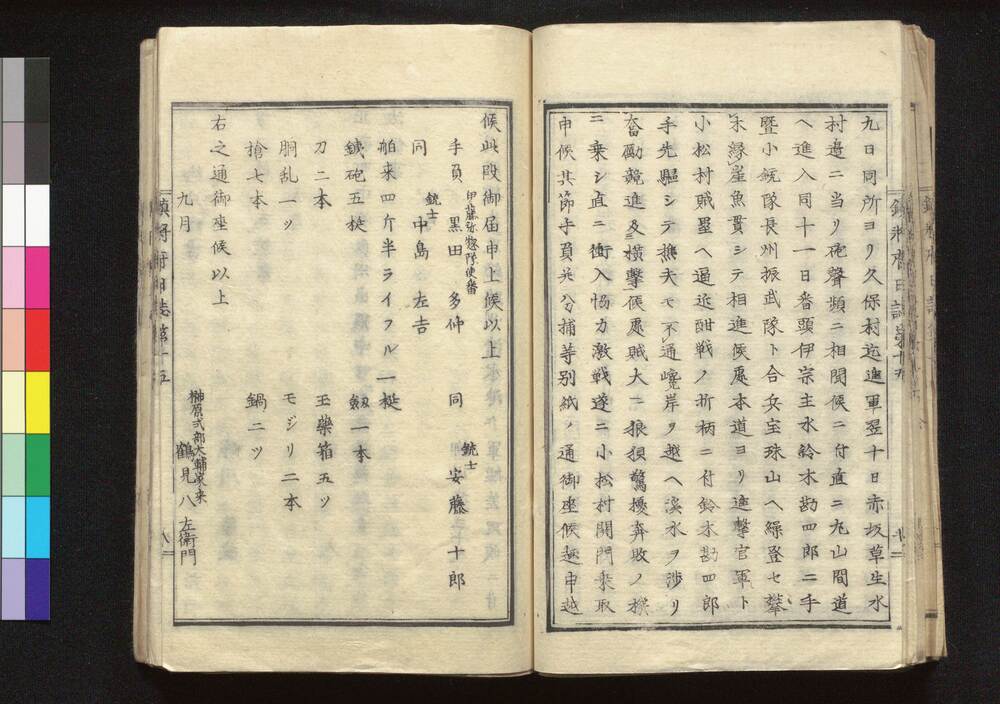 九日同所ヨリ久保村迄進軍翌十日赤坂草生水
村邉ニ当リ砲聲頻ニ相聞候ニ付直ニ九山間道
ヘ進入同十一日番頭伊宗主水鈴木勘四郎二手
曁小銃隊長州振武隊ト合兵宝珠山ヘ繰登セ攀
木縁崖魚貫シテ相進候處本道ヨリ進撃官軍ト
小松村賊壘ヘ逼近酣戦ノ折柄ニ付鈴木勘四郎
手先驅シテ樵夫モ不通嶢岸ヲ越ヘ溪水ヲ渉リ
奮勵競進及横撃候處賊大ニ狼狽驚擾奔敗ノ機
ニ乗シ直ニ衝入恊力激戦遂ニ小松村関門乗取
申候其節手負并分捕等別紙ノ通御座候趣申越
候此段御届申上候以上
甲藤弥惣隊使番
手負 黒田 多仲 同 銃士 安藤十郎
同 銃士 中島 左吉
舶来四斤半ライフル一梃
鉄砲五梃 劔一本
刀二本 玉藥箱五ッ
胴乱一ッ モジリ二本
槍七本 鍋二ッ
右之通御座候以上
九月 榊原式部大輔家来 鶴見八左衛門
鎮将府日誌第十五 八